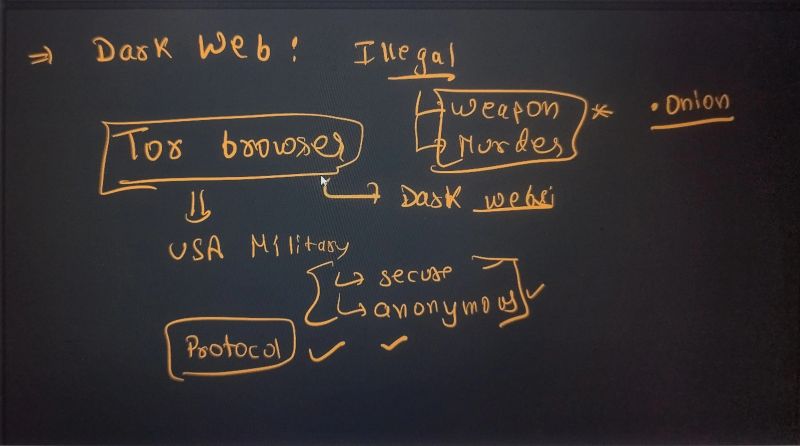 ⇒ Dark Web : Illegal
↳ Weapon * .Onion
↳ Murder
Tor browser
↳ Dark web
⇓
USA Military
↳ secure
↳ anonymous ✓
Protocol ✓ ✓